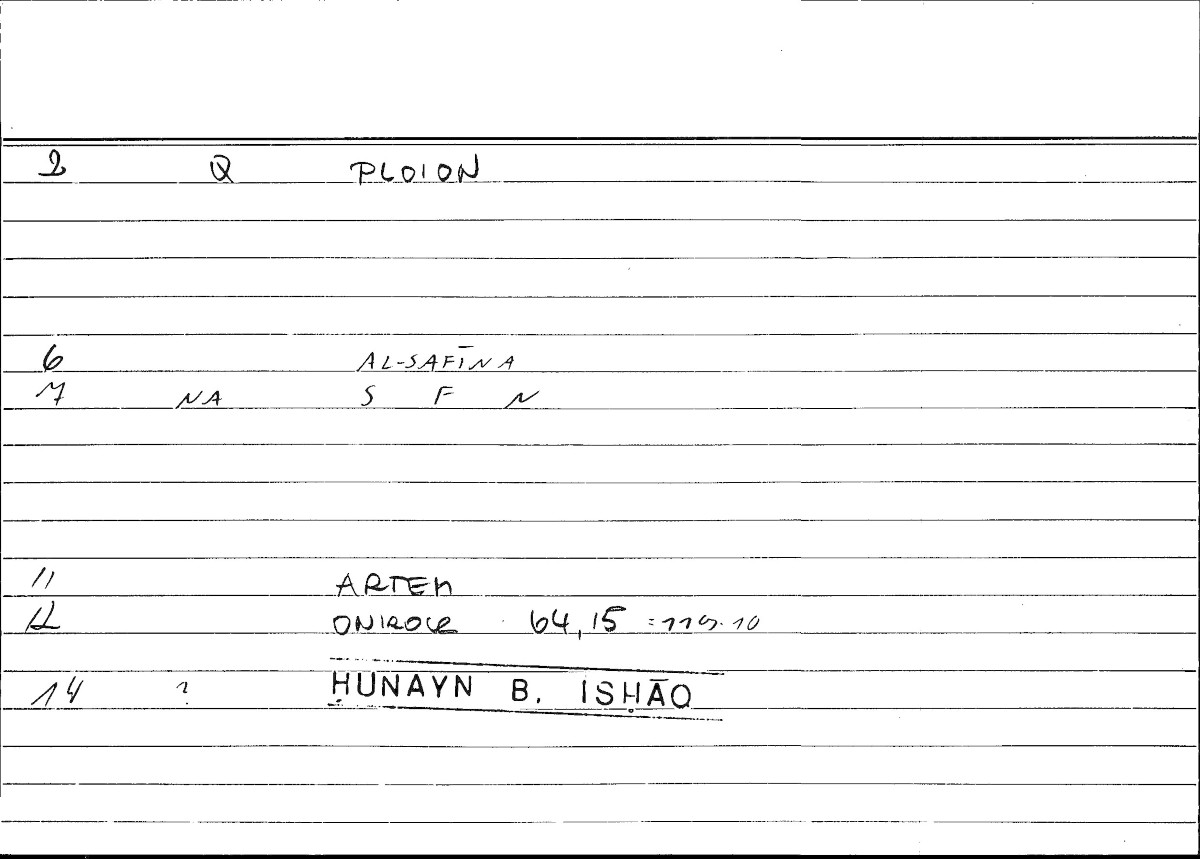 2 Q PLOION
6 AL-SAFĪNA
7 NA S F N
11 ARTEM
12 ONIROCR 64,15 =119.10
14 ? HUNAYN B. ISḤĀQ